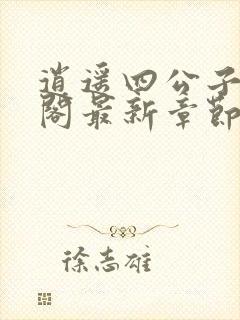 逍遥四公子
阁最新章节
徐志雄